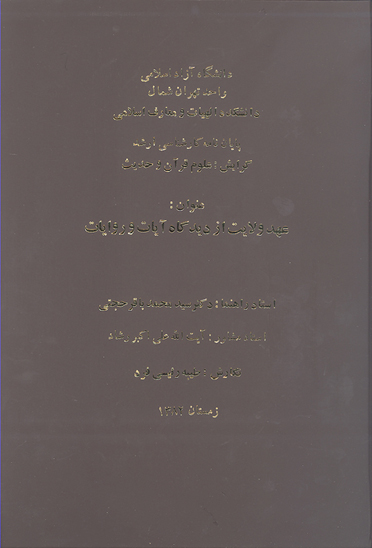 دانشگاه آزاد اسلامی
واحد تهران شمال
دانشکده الهیات و معارف اسلامی
پایان نامه کارشناسی ارشد
گرایش : علوم قرآن و حدیث
عنوان :
عهد ولایت از دیدگاه آیات و روایات
استاد راهنما : دکتر سید محمد باقر حجتی
استاد مشاور : آیت الله علی اکبر رشاد
نگارش : طیبه رئیسی فرد
زمستان